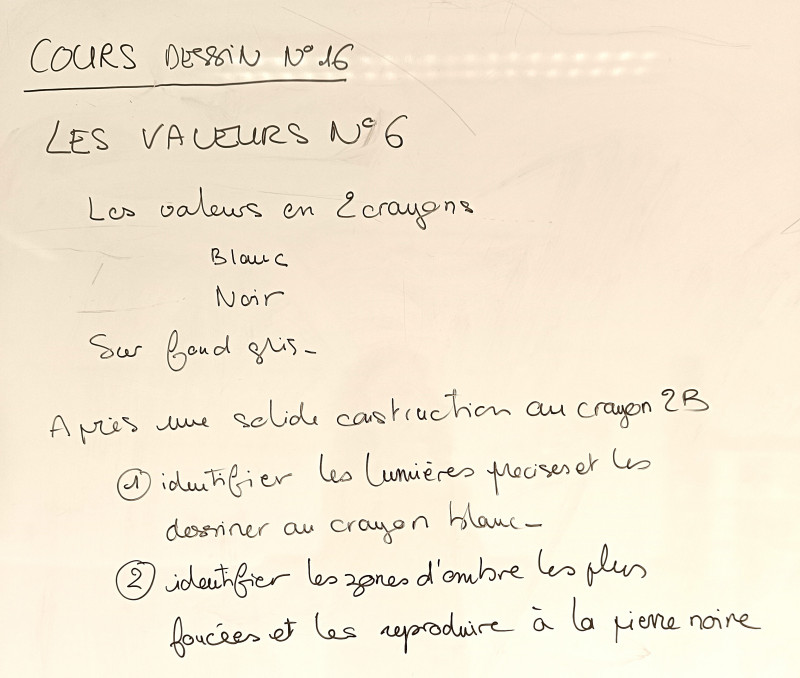 COURS DESSIN N° 16
LES VALEURS N° 6
Les valeurs en 2 crayons
Blanc
Noir
Sur fond gris -
Après une solide construction au crayon 2B
① identifier les lumières precises et les
dessiner au crayon blanc -
② identifier les zones d'ombre les plus
foncées et les reproduire à la pierre noire